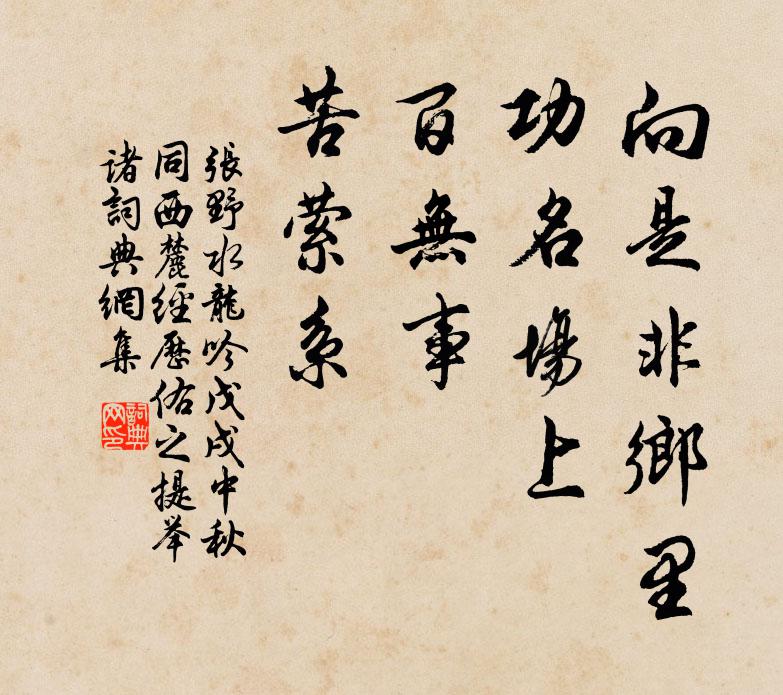 向是非鄉里
功名場上
百無事
苦縈系
張野水龍吟戊戌中秋
同西麓經歷佑之提举
诸詞典網集
詞典网印